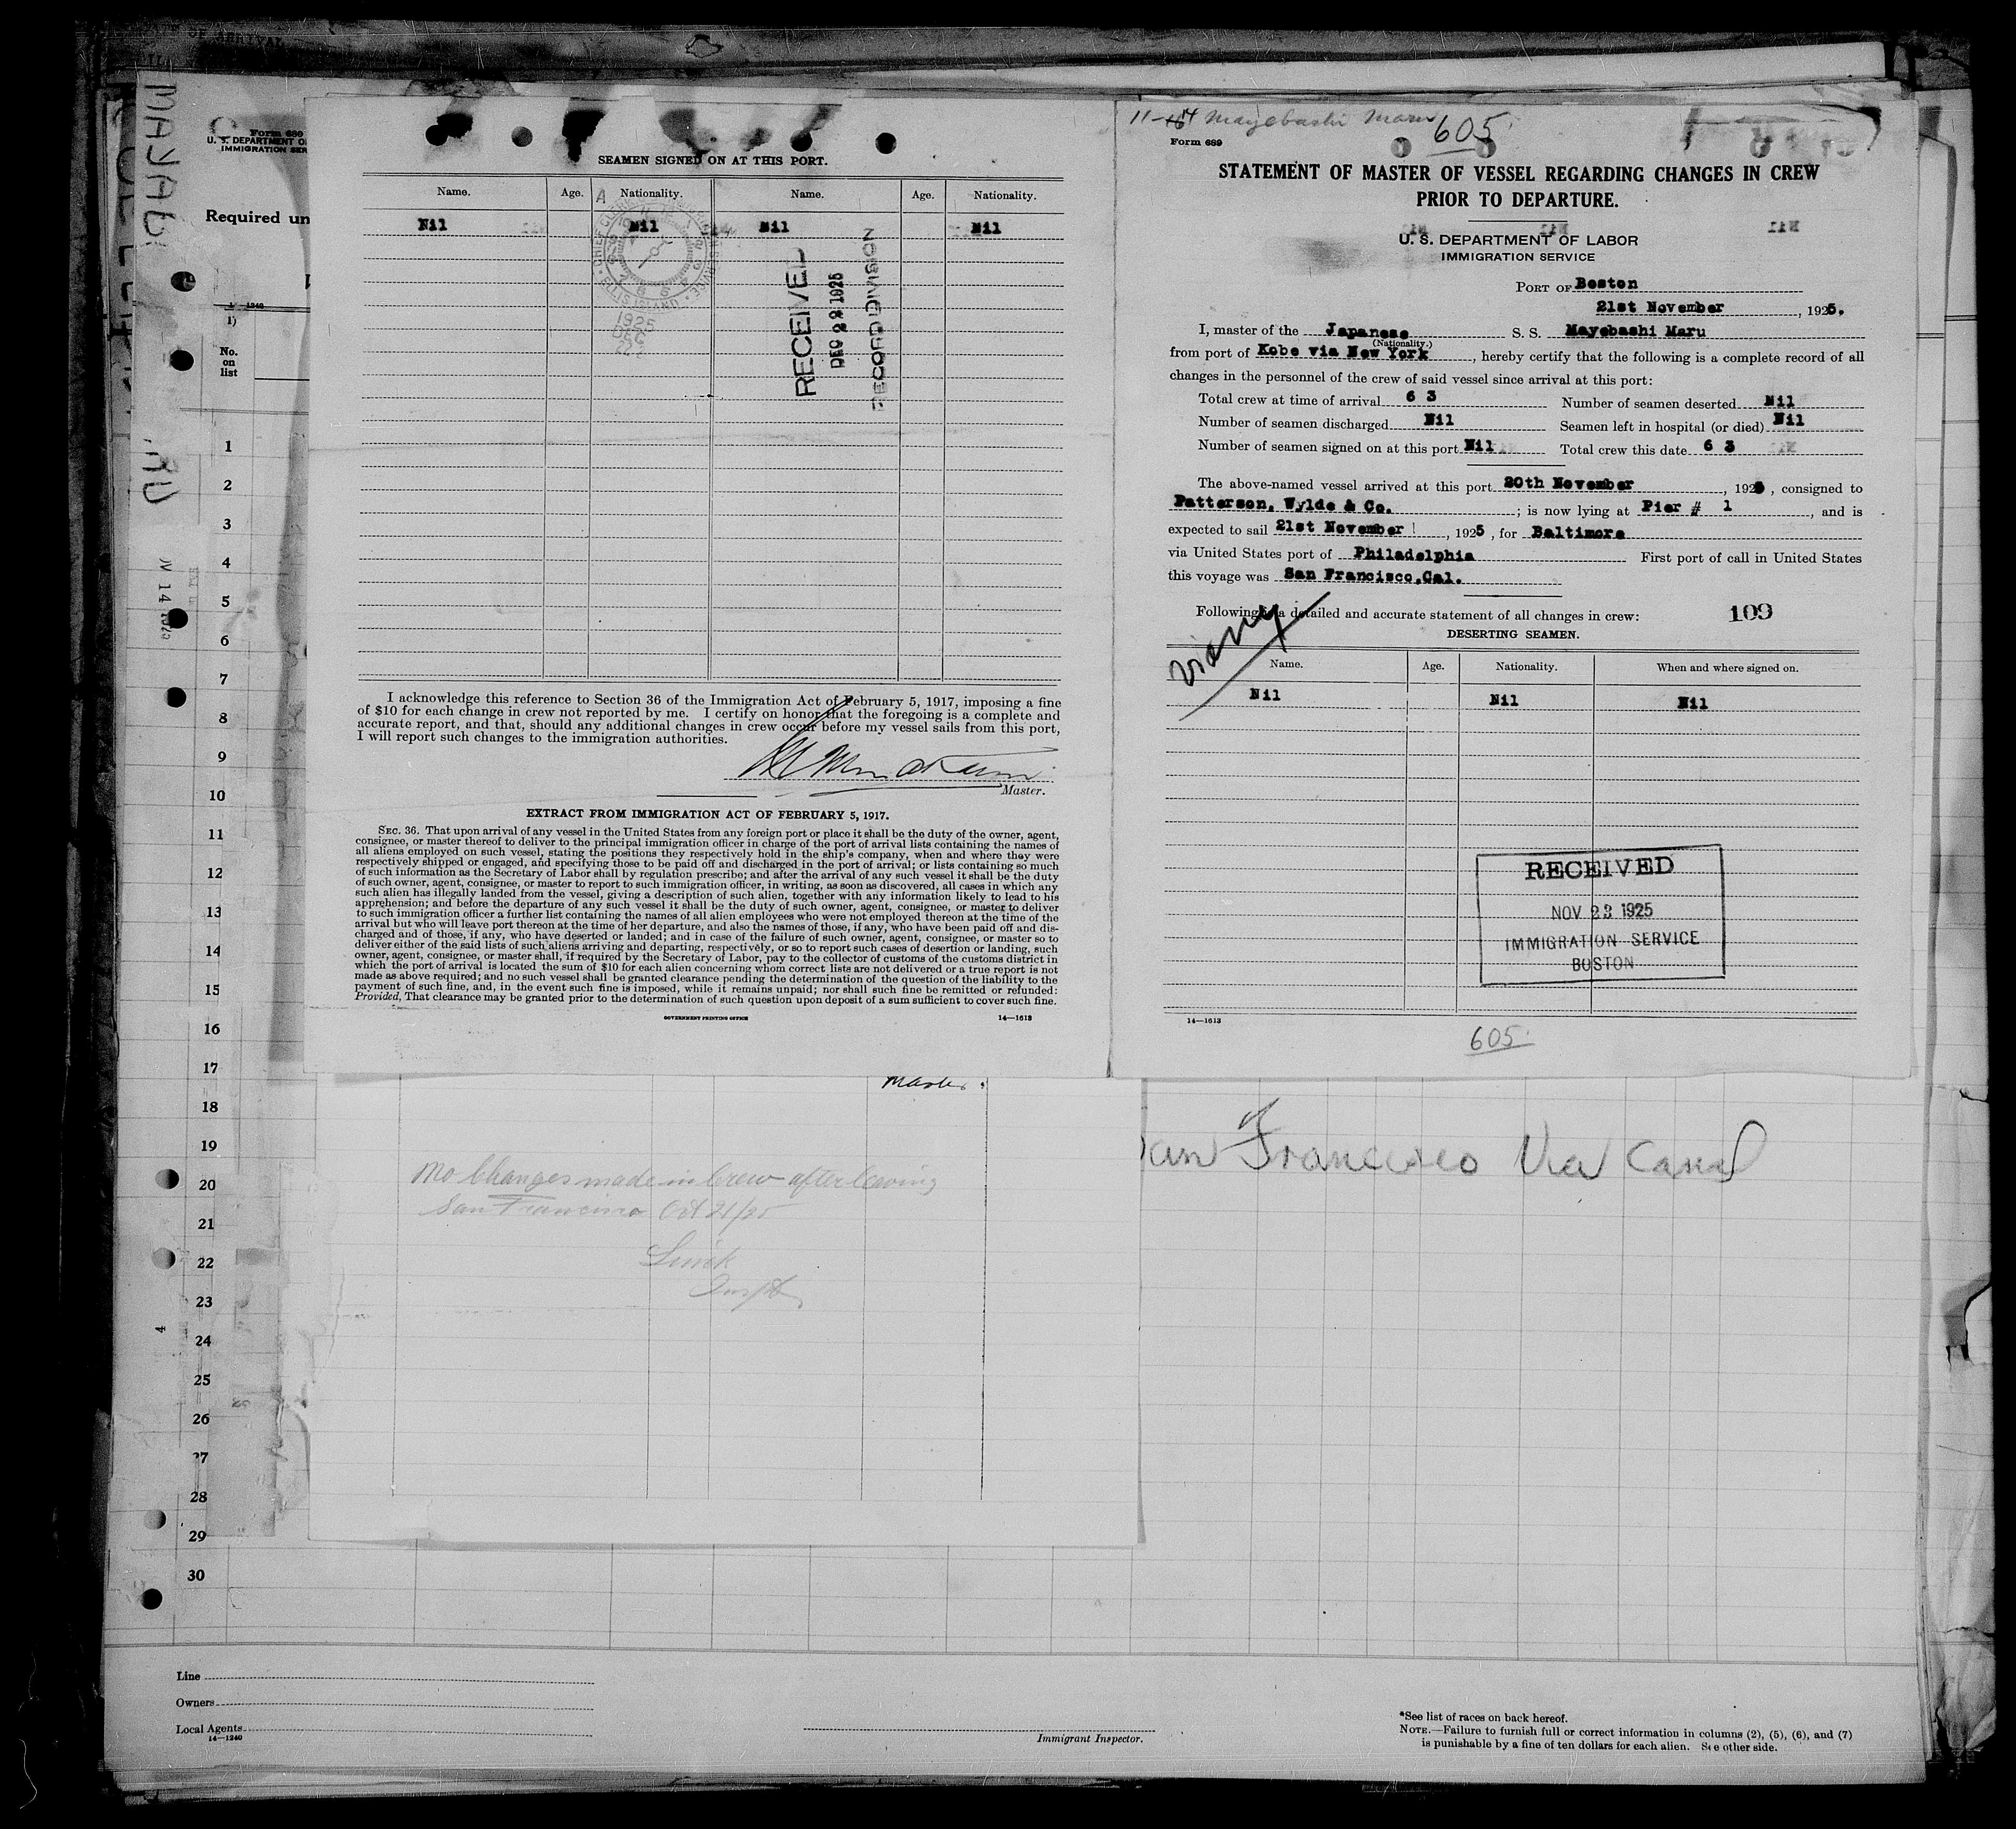 MAYABA
Form 689
U. S. DEPARTMENT O
IMMIGRATION SER
Required un
14—1240
1)
No.
on
list
1
2
3
4
5
6
7
8
9
10
11
12
13
14
15
16
17
18
19
20
21
22
23
24
25
26
27
28
29
30
SEAMEN SIGNED ON AT THIS PORT.
Name. Age. Nationality. Name. Age. Nationality.
Nil Nil Nil Nil
ELLIS ISLAND
1925
DEC
22
RECEIVED
DEC 22 1925
RECORD DIVISION
I acknowledge this reference to Section 36 of the Immigration Act of February 5, 1917, imposing a fine
of $10 for each change in crew not reported by me. I certify on honor that the foregoing is a complete and
accurate report, and that, should any additional changes in crew occur before my vessel sails from this port,
I will report such changes to the immigration authorities.
Master.
EXTRACT FROM IMMIGRATION ACT OF FEBRUARY 5, 1917.
SEC. 36. That upon arrival of any vessel in the United States from any foreign port or place it shall be the duty of the owner, agent,
consignee, or master thereof to deliver to the principal immigration officer in charge of the port of arrival lists containing the names of
all aliens employed on such vessel, stating the positions they respectively hold in the ship's company, when and where they were
respectively shipped or engaged, and specifying those to be paid off and discharged in the port of arrival; or lists containing so much
of such information as the Secretary of Labor shall by regulation prescribe; and after the arrival of any such vessel it shall be the duty
of such owner, agent, consignee, or master to report to such immigration officer, in writing, as soon as discovered, all cases in which any
such alien has illegally landed from the vessel, giving a description of such alien, together with any information likely to lead to his
apprehension; and before the departure of any such vessel it shall be the duty of such owner, agent, consignee, or master to deliver
to such immigration officer a further list containing the names of all alien employees who were not employed thereon at the time of the
arrival but who will leave port thereon at the time of her departure, and also the names of those, if any, who have been paid off and dis-
charged and of those, if any, who have deserted or landed; and in case of the failure of such owner, agent, consignee, or master so to
deliver either of the said lists of such aliens arriving and departing, respectively, or so to report such cases of desertion or landing, such
owner, agent, consignee, or master shall, if required by the Secretary of Labor, pay to the collector of customs of the customs district in
which the port of arrival is located the sum of $10 for each alien concerning whom correct lists are not delivered or a true report is not
made as above required; and no such vessel shall be granted clearance pending the determination of the question of the liability to the
payment of such fine, and, in the event such fine is imposed, while it remains unpaid; nor shall such fine be remitted or refunded:
Provided, That clearance may be granted prior to the determination of such question upon deposit of a sum sufficient to cover such fine.
GOVERNMENT PRINTING OFFICE 14—1613
Master.
No Changes made in Crew after leaving
San Francisco Oct 21/25
Insptr
11-14 Mayebashi Maru
605
Form 689
STATEMENT OF MASTER OF VESSEL REGARDING CHANGES IN CREW
PRIOR TO DEPARTURE.
U. S. DEPARTMENT OF LABOR
IMMIGRATION SERVICE
PORT OF Boston
21st November, 1925.
I, master of the Japanese S. S. Mayebashi Maru
(Nationality.)
from port of Kobe via New York, hereby certify that the following is a complete record of all
changes in the personnel of the crew of said vessel since arrival at this port:
Total crew at time of arrival 6 3 Number of seamen deserted Nil
Number of seamen discharged Nil Seamen left in hospital (or died) Nil
Number of seamen signed on at this port Nil Total crew this date 6 3
The above-named vessel arrived at this port 20th November, 1925, consigned to
Patterson, Wylde & Co.; is now lying at Pier # 1, and is
expected to sail 21st November, 1925, for Baltimore
via United States port of Philadelphia First port of call in United States
this voyage was San Francisco,Cal.
Following is a detailed and accurate statement of all changes in crew: 109
DESERTING SEAMEN.
Name. Age. Nationality. When and where signed on.
Nil Nil Nil
RECEIVED
NOV 23 1925
IMMIGRATION SERVICE
BOSTON
14—1613
605
San Francisco Via Canal
Line
Owners
Local Agents
14—1240
Immigrant Inspector.
*See list of races on back hereof.
NOTE.—Failure to furnish full or correct information in columns (2), (5), (6), and (7)
is punishable by a fine of ten dollars for each alien. See other side.